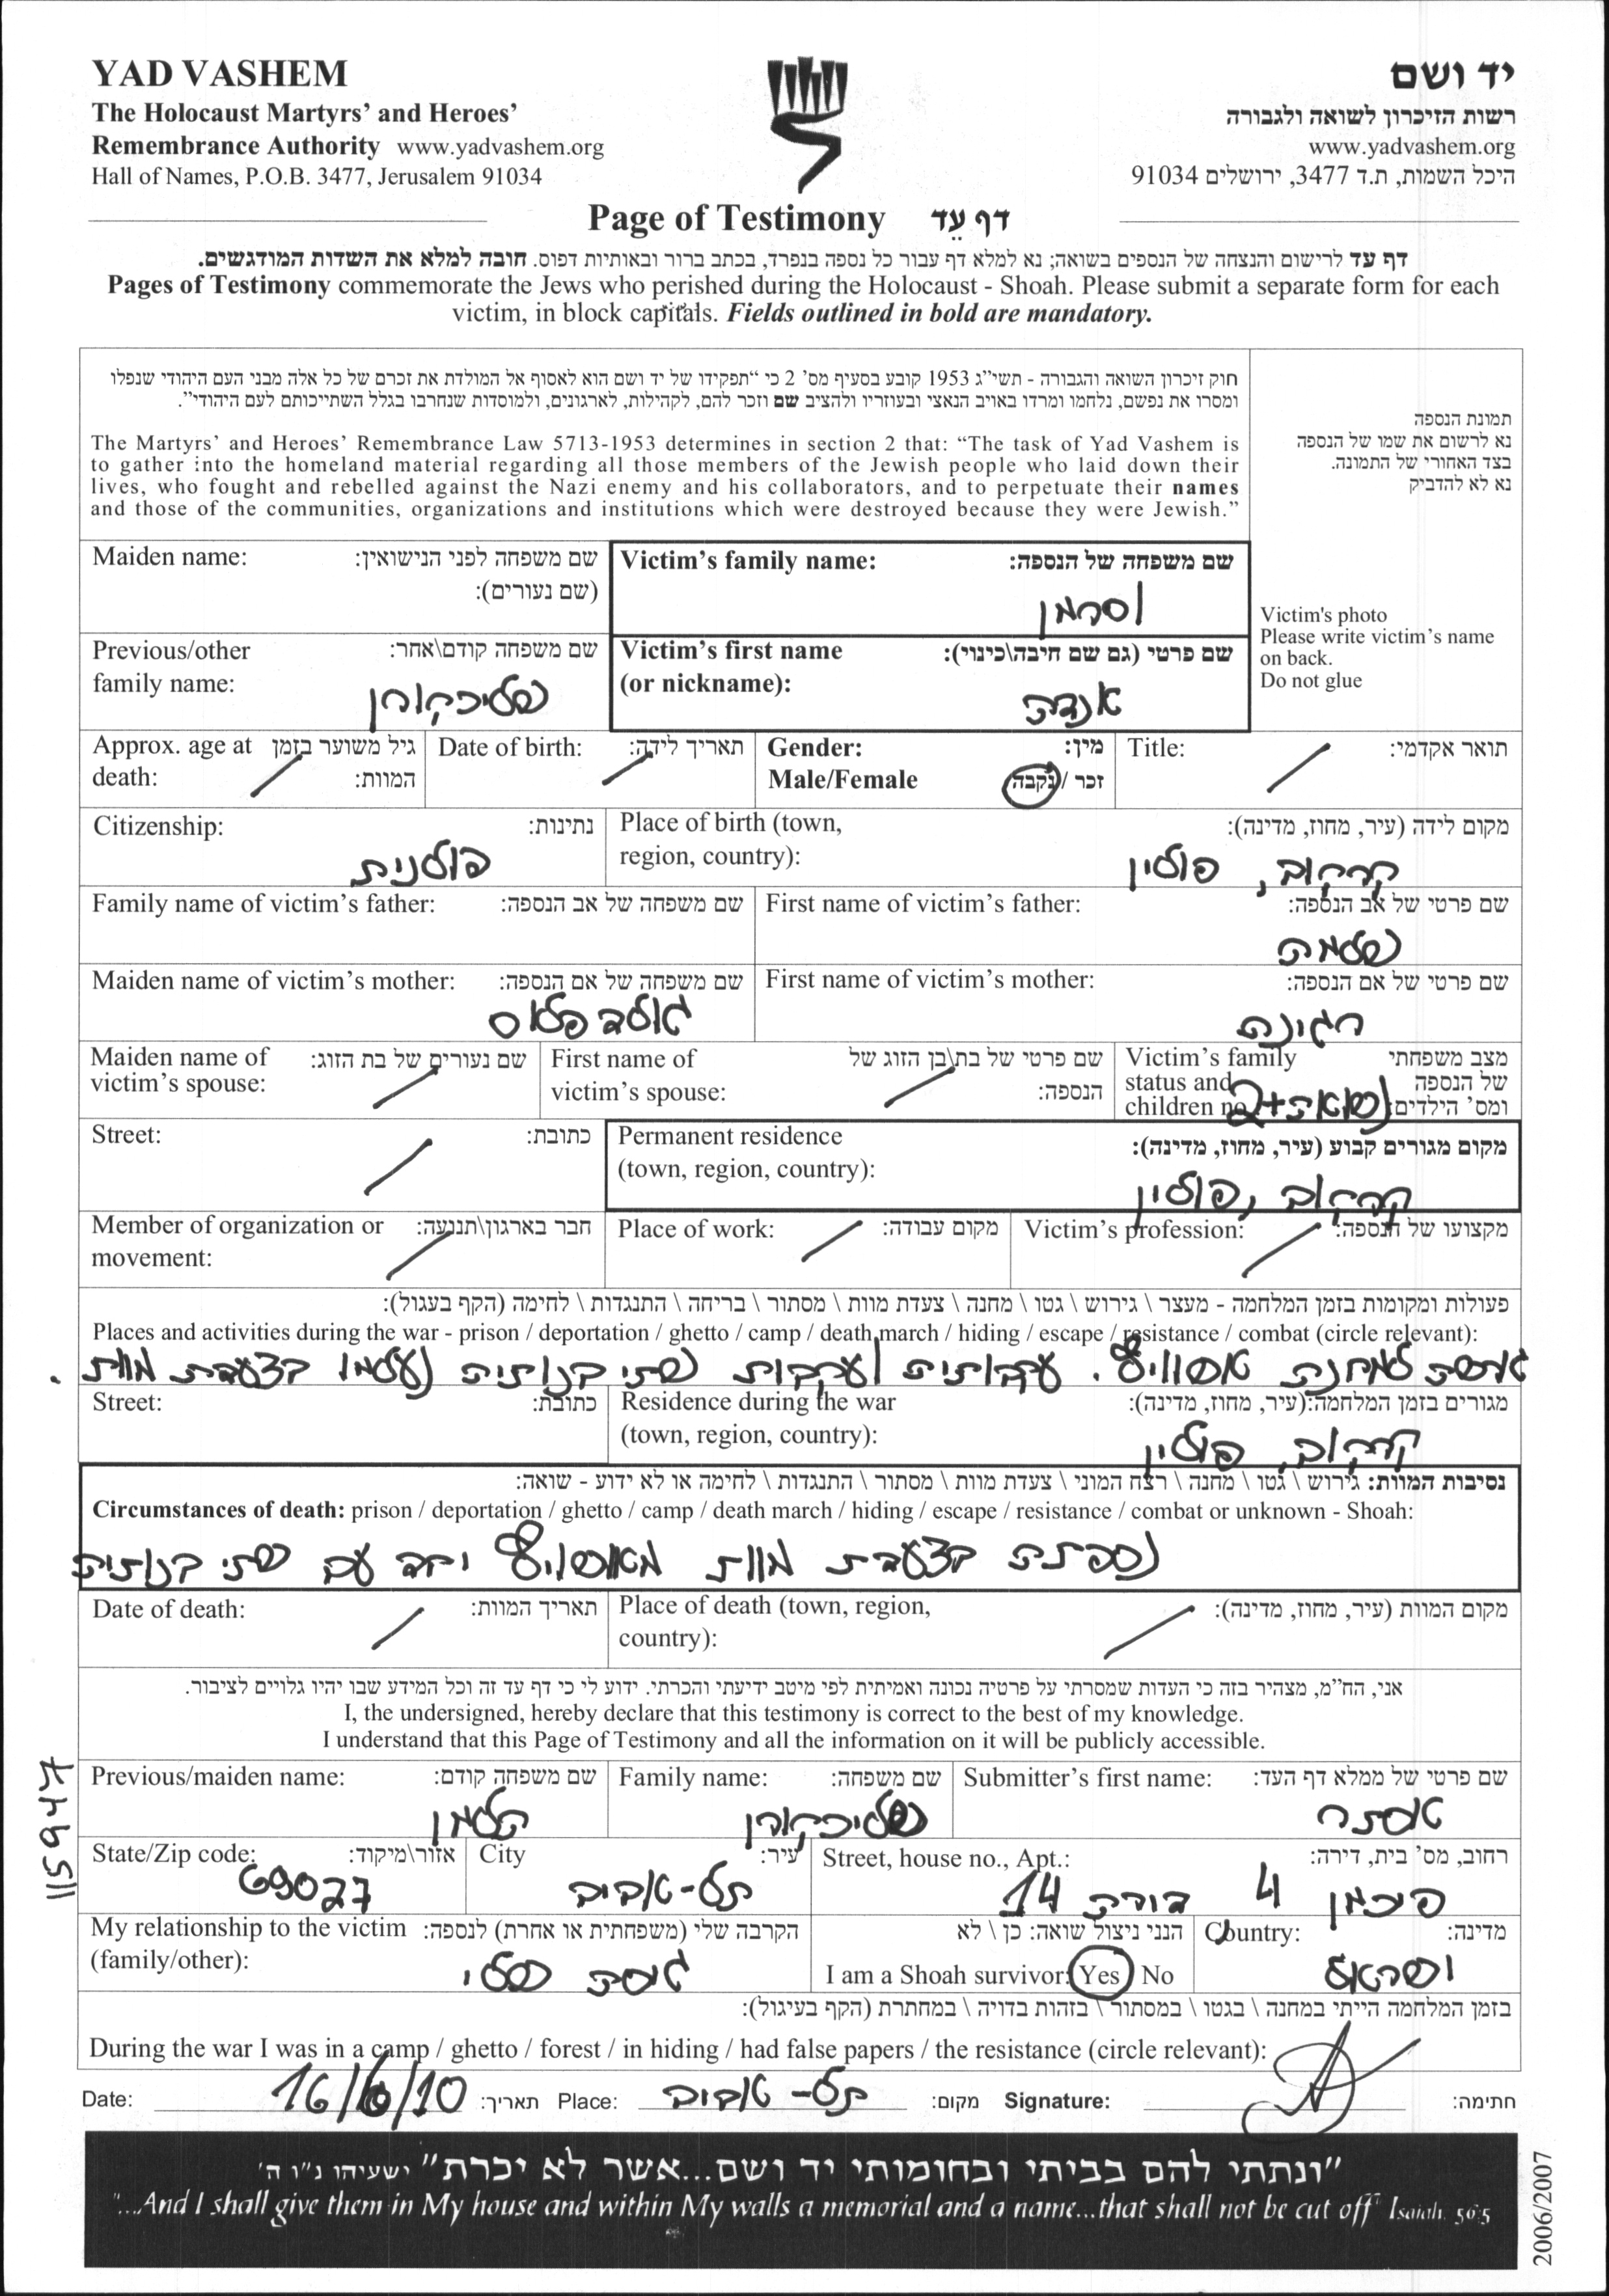 YAD VASHEM
The Holocaust Martyrs' and Heroes'
Remembrance Authority www.yadvashem.org
Hall of Names, P.O.B. 3477, Jerusalem 91034
יד ושם
רשות הזיכרון לשואה ולגבורה
www.yadvashem.org
היכל השמות, ת.ד 3477, ירושלים 91034
Page of Testimony דף עֵד
דף עד לרישום והנצחה של הנספים בשואה; נא למלא דף עבור כל נספה בנפרד, בכתב ברור ובאותיות דפוס. חובה למלא את השדות המודגשים.
Pages of Testimony commemorate the Jews who perished during the Holocaust - Shoah. Please submit a separate form for each
victim, in block capitals. Fields outlined in bold are mandatory.
חוק זיכרון השואה והגבורה - תשי"ג 1953 קובע בסעיף מס' 2 כי "תפקידו של יד ושם הוא לאסוף אל המולדת את זכרם של כל אלה מבני העם היהודי שנפלו
ומסרו את נפשם, נלחמו ומרדו באויב הנאצי ובעוזריו ולהציב שם וזכר להם, לקהילות, לארגונים, ולמוסדות שנחרבו בגלל השתייכותם לעם היהודי".
The Martyrs' and Heroes' Remembrance Law 5713-1953 determines in section 2 that: "The task of Yad Vashem is
to gather into the homeland material regarding all those members of the Jewish people who laid down their
lives, who fought and rebelled against the Nazi enemy and his collaborators, and to perpetuate their names
and those of the communities, organizations and institutions which were destroyed because they were Jewish."
תמונת הנספה
נא לרשום את שמו של הנספה
בצד האחורי של התמונה.
נא לא להדביק
Victim's photo
Please write victim's name
on back.
Do not glue
Maiden name: שם משפחה לפני הנישואין:
(שם נעורים):
Victim's family name: שם משפחה של הנספה:
וסרמן
Previous/other שם משפחה קודם\אחר:
family name:
שליכקורן
Victim's first name שם פרטי (גם שם חיבה\כינוי):
(or nickname):
אנדה
Approx. age at גיל משוער בזמן
death: המוות:
Date of birth: תאריך לידה:
Gender: מין:
Male/Female זכר / נקבה
Title: תואר אקדמי:
Citizenship: נתינות:
פולנית
Place of birth (town, מקום לידה (עיר, מחוז, מדינה):
region, country):
קרקוב, פולין
Family name of victim's father: שם משפחה של אב הנספה:
First name of victim's father: שם פרטי של אב הנספה:
שלמה
Maiden name of victim's mother: שם משפחה של אם הנספה:
גולבפלוס
First name of victim's mother: שם פרטי של אם הנספה:
רגינה
Maiden name of שם נעורים של בת הזוג:
victim's spouse:
First name of שם פרטי של בת\בן הזוג של
victim's spouse: הנספה:
Victim's family מצב משפחתי
status and של הנספה
children no. ומס' הילדים:
נשואה+2
Street: כתובת:
Permanent residence מקום מגורים קבוע (עיר, מחוז, מדינה):
(town, region, country):
קרקוב, פולין
Member of organization or חבר בארגון\תנועה:
movement:
Place of work: מקום עבודה:
Victim's profession: מקצועו של הנספה:
פעולות ומקומות בזמן המלחמה - מעצר \ גירוש \ גטו \ מחנה \ צעדת מוות \ מסתור \ בריחה \ התנגדות \ לחימה (הקף בעגול):
Places and activities during the war - prison / deportation / ghetto / camp / death march / hiding / escape / resistance / combat (circle relevant):
למחנה אשוויץ. עקבותיה ועקבות שתי בנותיה נעלמו בצעדת מוות.
Street: כתובת:
Residence during the war מגורים בזמן המלחמה:(עיר, מחוז, מדינה):
(town, region, country):
קרקוב, פולין
נסיבות המוות: גירוש \ גטו \ מחנה \ רצח המוני \ צעדת מוות \ מסתור \ התנגדות \ לחימה או לא ידוע - שואה:
Circumstances of death: prison / deportation / ghetto / camp / death march / hiding / escape / resistance / combat or unknown - Shoah:
נספתה בצעדת מוות מאושוויץ יחד עם שתי בנותיה
Date of death: תאריך המוות:
Place of death (town, region, מקום המוות (עיר, מחוז, מדינה):
country):
אני, הח"מ, מצהיר בזה כי העדות שמסרתי על פרטיה נכונה ואמיתית לפי מיטב ידיעתי והכרתי. ידוע לי כי דף עד זה וכל המידע שבו יהיו גלויים לציבור.
I, the undersigned, hereby declare that this testimony is correct to the best of my knowledge.
I understand that this Page of Testimony and all the information on it will be publicly accessible.
Previous/maiden name: שם משפחה קודם:
קלמן
Family name: שם משפחה:
שליכקורן
Submitter's first name: שם פרטי של ממלא דף העד:
אסתר
State/Zip code: אזור\מיקוד:
69027
City עיר:
תל-אביב
Street, house no., Apt.: רחוב, מס' בית, דירה:
פיכמן 4 דירה 14
My relationship to the victim הקרבה שלי (משפחתית או אחרת) לנספה:
(family/other):
גיסה שלי
הנני ניצול שואה: כן \ לא
I am a Shoah survivor: Yes / No
Country: מדינה:
ישראל
בזמן המלחמה הייתי במחנה \ בגטו \ במסתור \ בזהות בדויה \ במחתרת (הקף בעיגול):
During the war I was in a camp / ghetto / forest / in hiding / had false papers / the resistance (circle relevant):
Date: 16/6/10 תאריך: Place: תל-אביב מקום: Signature: חתימה:
"ונתתי להם בביתי ובחומותי יד ושם...אשר לא יכרת" ישעיהו נ"ו ה'
"...And I shall give them in My house and within My walls a memorial and a name...that shall not be cut off" Isaiah 56:5
2006/2007